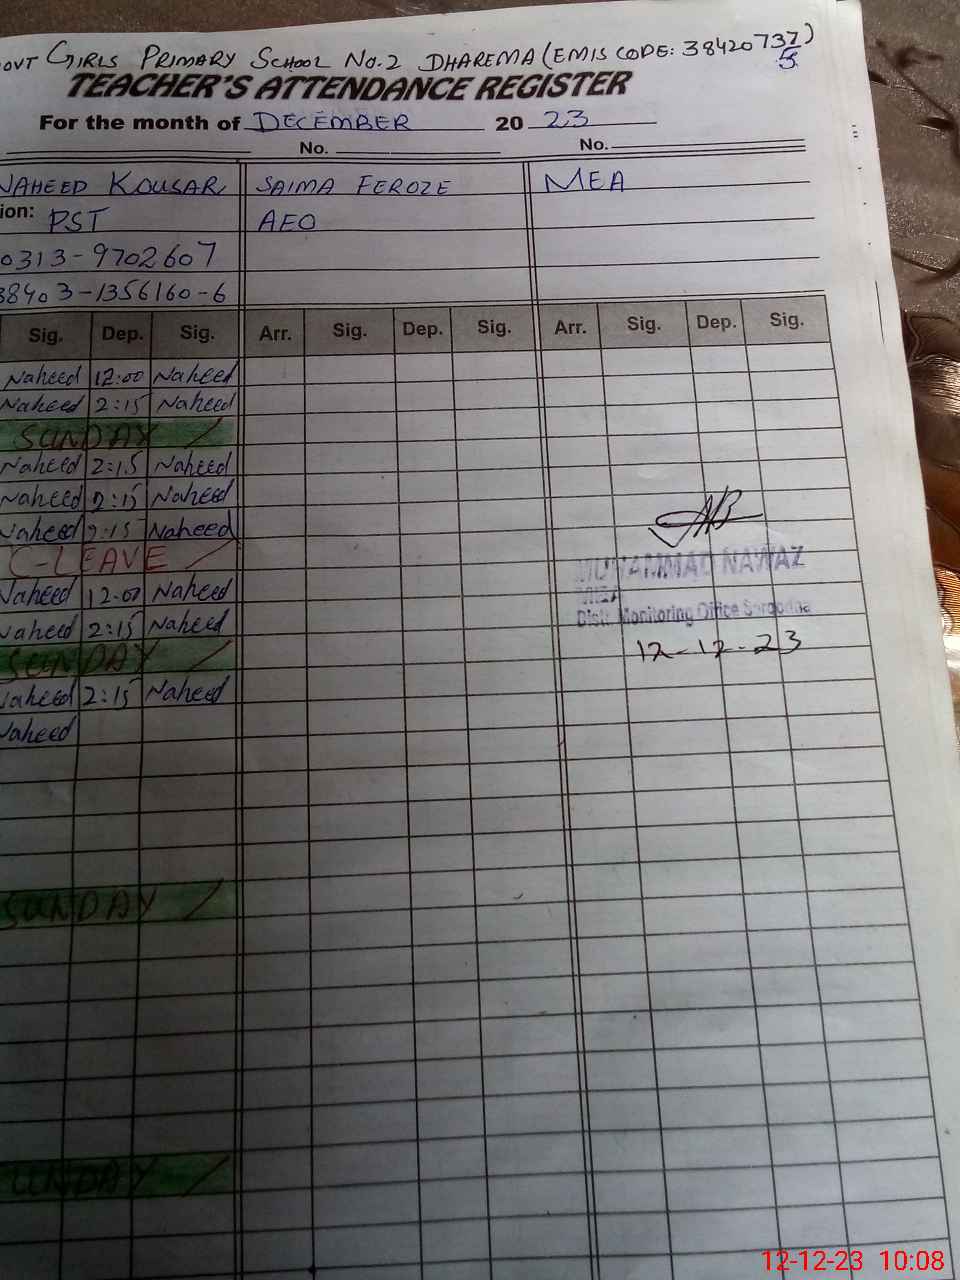 GOVT GIRLS PRIMARY SCHOOL NO.2 DHAREMA (EMIS CODE: 38420737)
5
TEACHER'S ATTENDANCE REGISTER
For the month of DECEMBER 20 23
No. No.
NAHEED KOUSAR SAIMA FEROZE MEA
ion: PST AEO
0313-9702607
38403-1356160-6
Sig. Dep. Sig. Arr. Sig. Dep. Sig. Arr. Sig. Dep. Sig.
Naheed 12:00 Naheed
Naheed 2:15 Naheed
SUNDAY
Naheed 2:15 Naheed
Naheed 2:15 Naheed
Naheed 2:15 Naheed
C-LEAVE
Naheed 12:00 Naheed
Naheed 2:15 Naheed
SUNDAY
Naheed 2:15 Naheed
Naheed
MUHAMMAD NAWAZ
MEA
Distt. Monitoring Office Sargodha
12-12-23
SUNDAY
SUNDAY
12-12-23 10:08